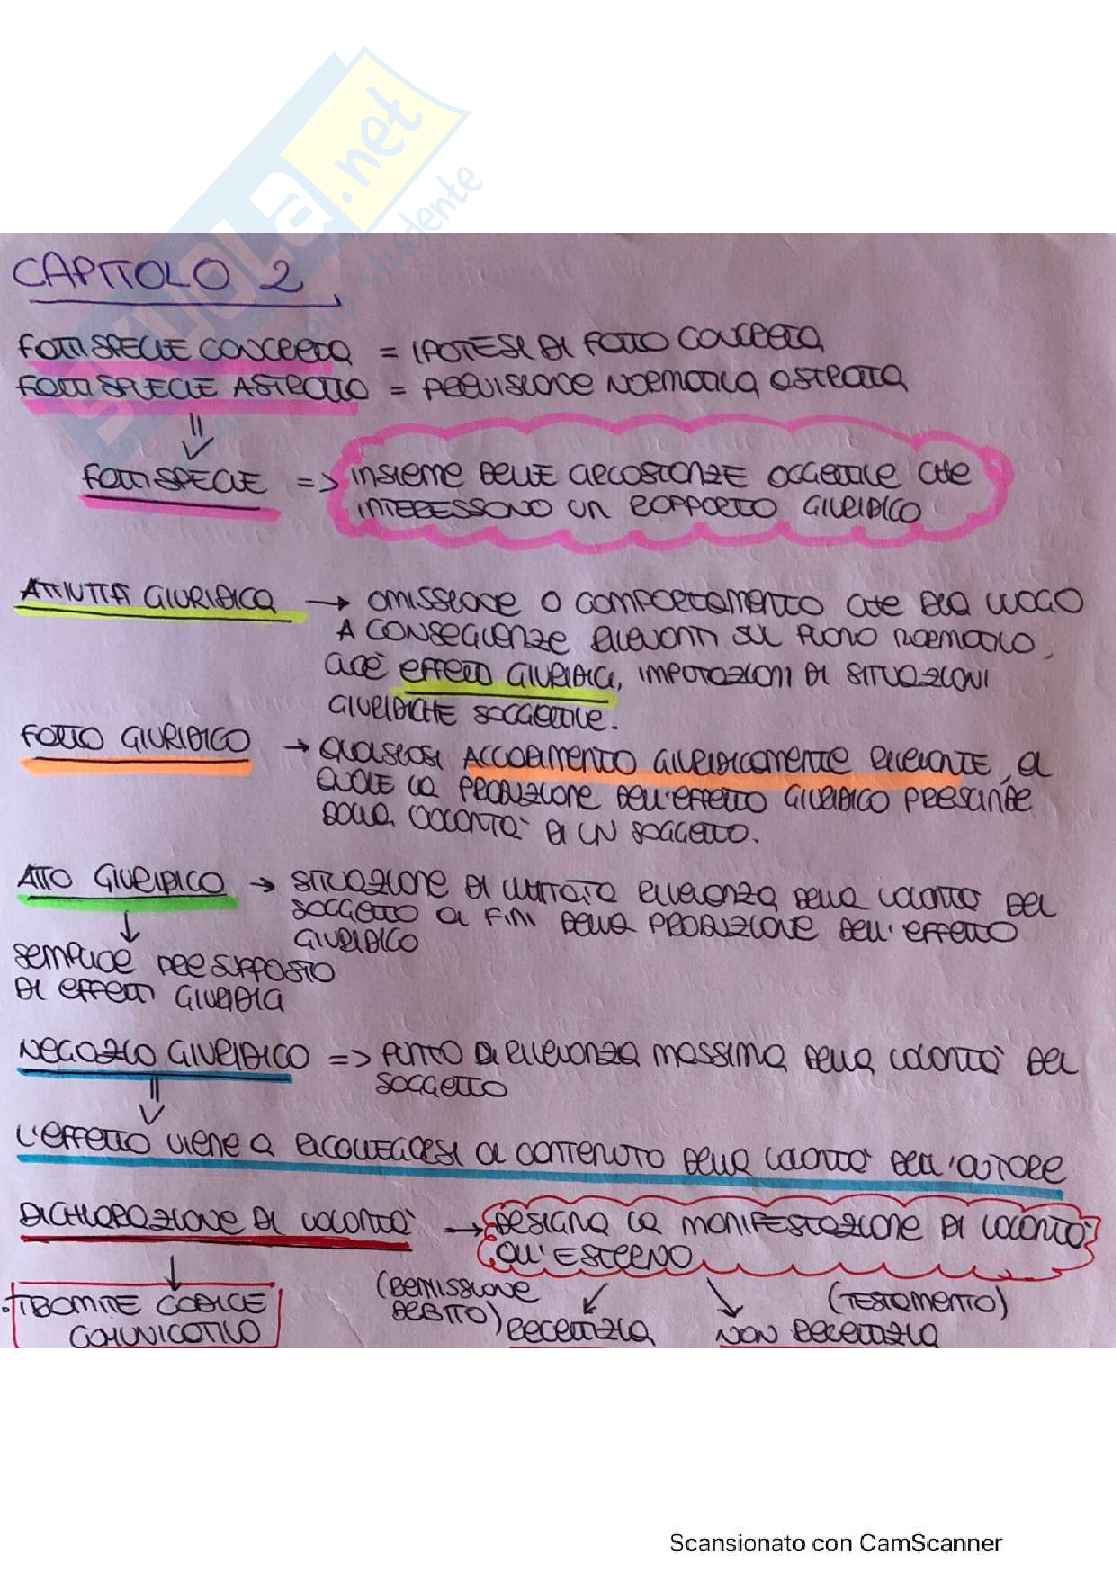 SKUOLA.net
CAPITOLO 2
FATTISPECIE CONCRETA = IPOTESI DI FATTO CONCRETA
FATTISPECIE ASTRATTA = PREVISIONE NORMATIVA ASTRATTA
FATTISPECIE => INSIEME DELLE CIRCOSTANZE OGGETTIVE CHE
INTERESSANO UN RAPPORTO GIURIDICO
ATTIVITÀ GIURIDICA → OMISSIONE O COMPORTAMENTO CHE DÀ LUOGO
A CONSEGUENZE RILEVANTI SUL PIANO NORMATIVO,
CIOÈ EFFETTI GIURIDICI, IMPUTAZIONI DI SITUAZIONI
GIURIDICHE SOGGETTIVE.
FATTO GIURIDICO → QUALSIASI ACCADIMENTO GIURIDICAMENTE RILEVANTE, AL
QUALE LA PRODUZIONE DELL'EFFETTO GIURIDICO PRESCINDE
DALLA VOLONTÀ DI UN SOGGETTO.
ATTO GIURIDICO → SITUAZIONE DI LIMITATA RILEVANZA DELLA VOLONTÀ DEL
SOGGETTO AI FINI DELLA PRODUZIONE DELL'EFFETTO
GIURIDICO
SEMPLICE PRESUPPOSTO
DI EFFETTI GIURIDICI
NEGOZIO GIURIDICO => PUNTO DI RILEVANZA MASSIMA DELLA VOLONTÀ DEL
SOGGETTO
L'EFFETTO VIENE A RICOLLEGARSI AL CONTENUTO DELLA VOLONTÀ DELL'AUTORE
DICHIARAZIONE DI VOLONTÀ → DESIGNA LA MANIFESTAZIONE DI VOLONTÀ
ALL'ESTERNO
TRAMITE CODICE
COMUNICATIVO
(REMISSIONE
DEBITO) RECETTIZIA
(TESTAMENTO)
NON RECETTIZIA
Scansionato con CamScanner